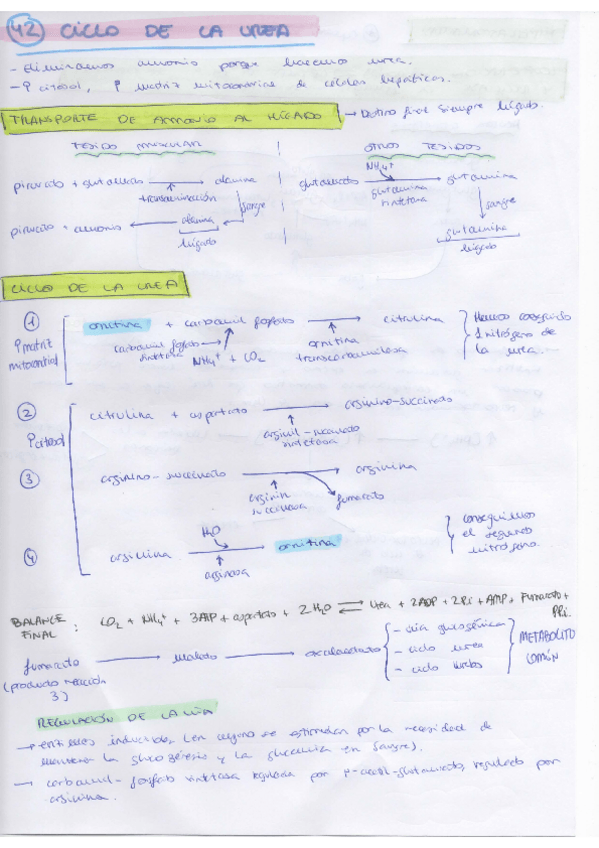 42 CICLO DE LA UREA
- Eliminamos amonio porque hacemos urea.
- ♀ citosol, ♀ matriz mitocondrias de células hepáticas.
TRANSPORTE DE AMONIO AL HÍGADO → Destino final siempre hígado.
TEJIDO MUSCULAR
OTROS TEJIDOS
piruvato + glutamato → alanina
transaminación
sangre
piruvato + amonio ← alanina
hígado
glutamato → glutamina
NH4+
glutamina sintetasa
sangre
glutamina
hígado
CICLO DE LA UREA
1 ornitina + carbamil fosfato → citrulina
♀ matriz mitocondrial
carbamil fosfato sintetasa
NH4+ + CO2
ornitina transcarbamilasa
Hemos conseguido
1 nitrógeno de
la urea.
2 citrulina + aspartato → arginino-succinato
♀ citosol
arginil-succinato sintetasa
3 arginino-succinato → arginina
arginin succinasa
fumarato
4 arginina → ornitina
H2O
arginasa
conseguimos
el segundo
nitrógeno.
BALANCE FINAL: CO2 + NH4+ + 3ATP + aspartato + 2H2O ⇌ Urea + 2ADP + 2Pi + AMP + Fumarato + PPi.
fumarato → malato → oxalacetato
(producto reacción 3)
- vía glucogénica
- ciclo urea
- ciclo krebs
METABOLITO COMÚN
REGULACIÓN DE LA VÍA
→ enzimas inducidas (en ayuno se estimulan por la necesidad de
mantener la glucogénesis y la glucemia en sangre).
→ carbamil-fosfato sintetasa regulada por N-acetil-glutamato, regulado por
arginina.